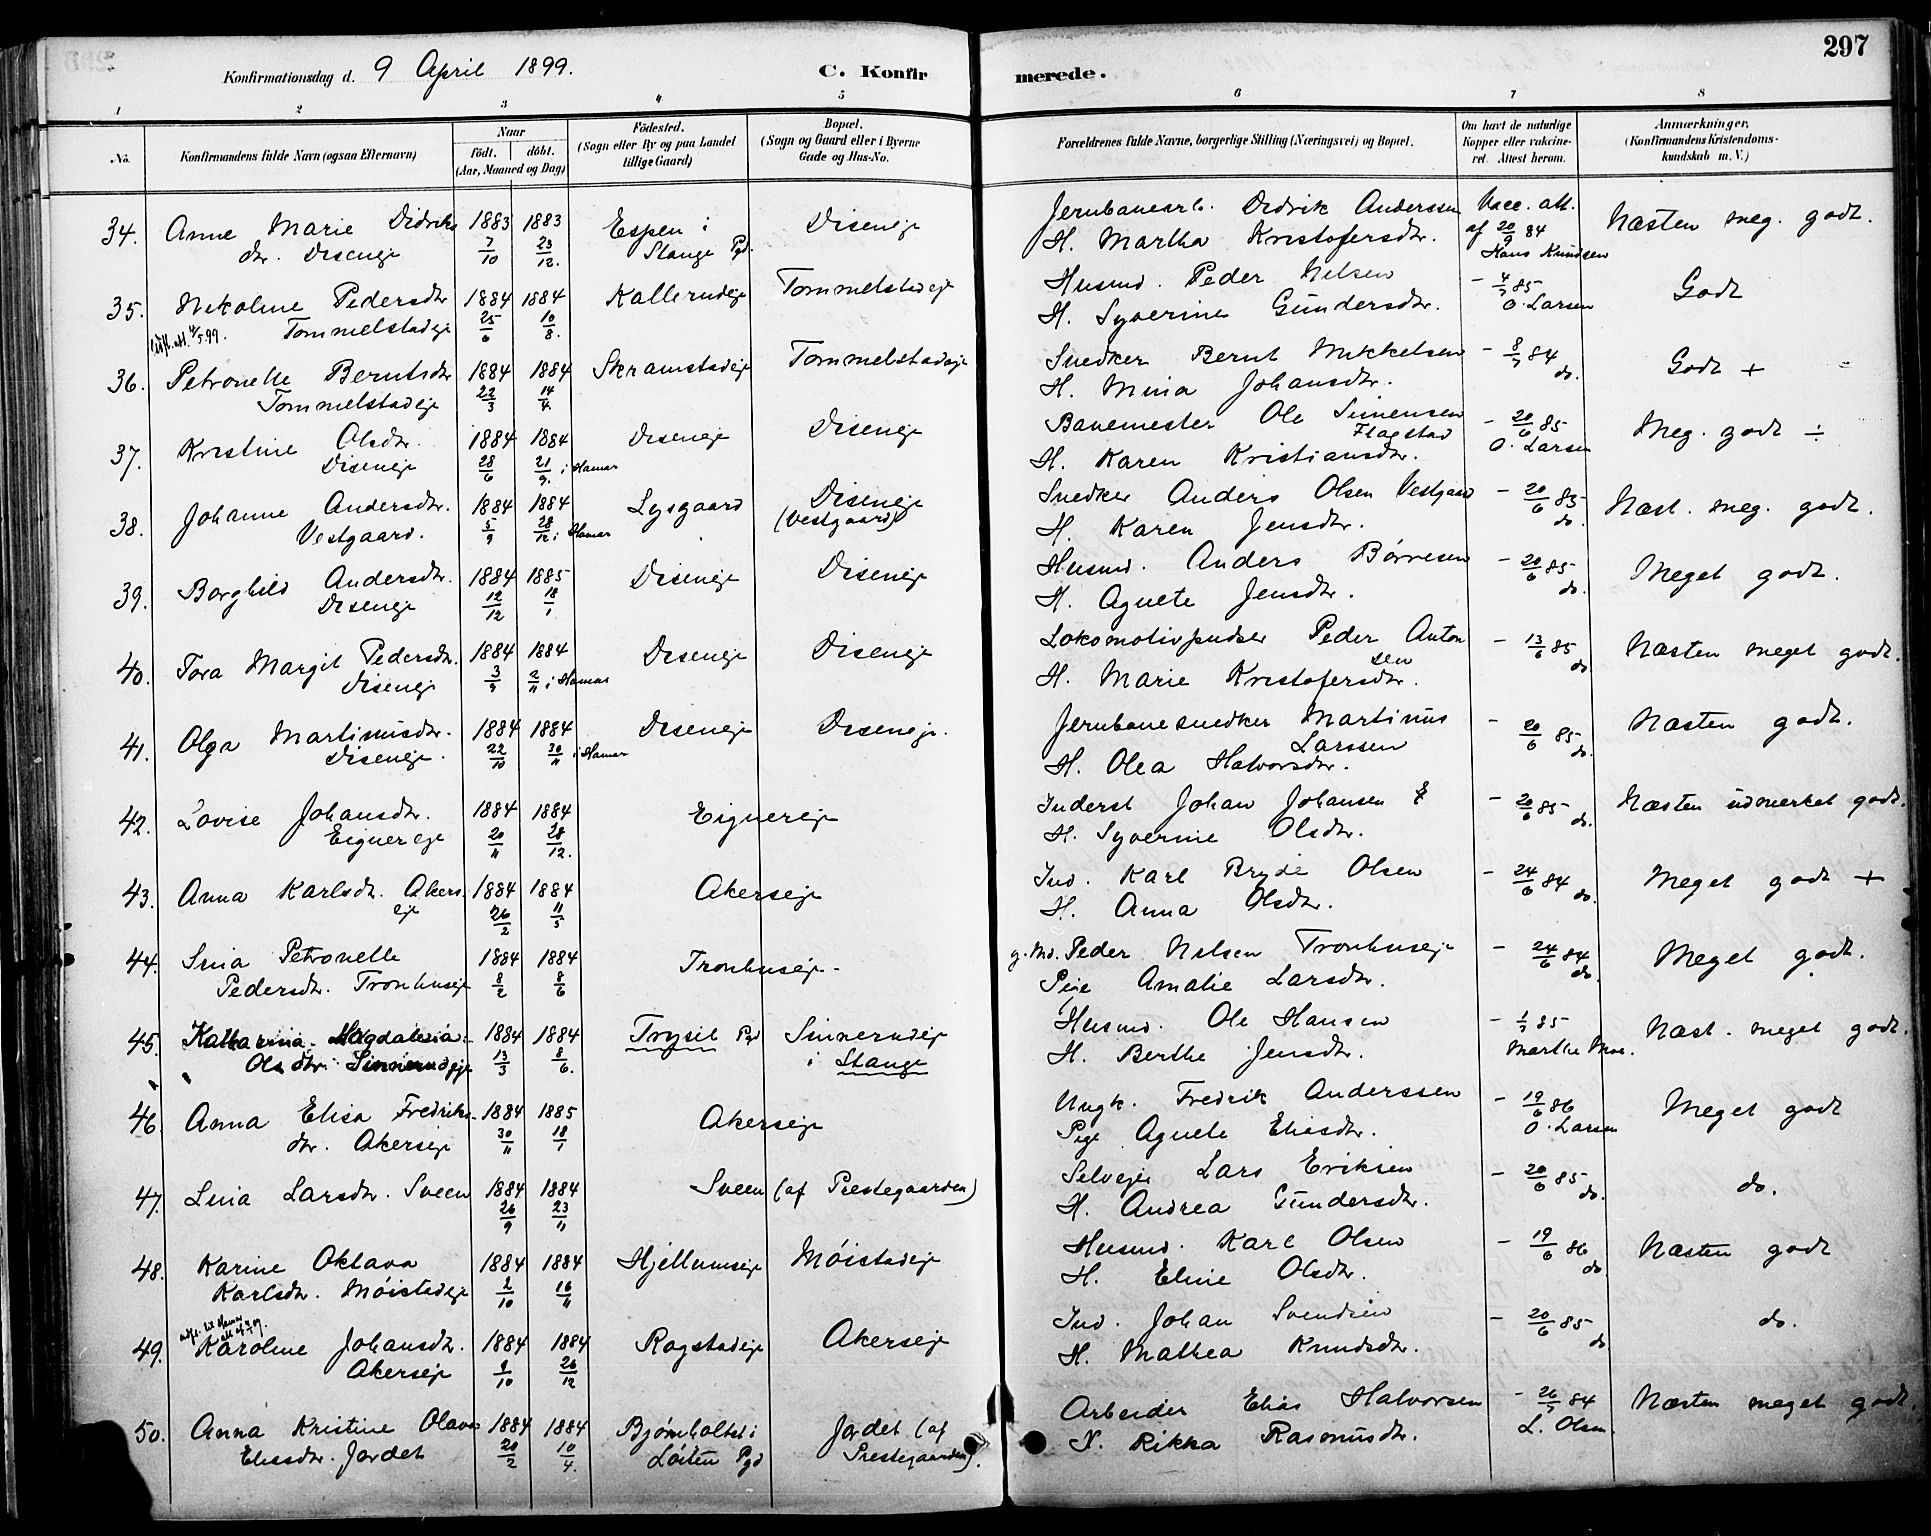 297
Konfirmationsdag d. 9 April 1899. C. Konfirmerede.
1 2 3 4 5 6 7 8
No. Konfirmandens fulde Navn (ogsaa Efternavn) Naar født. døbt. (Aar, Maaned og Dag) Fødested. (Sogn eller By og paa Landet tillige Gaard) Bopæl. (Sogn og Gaard eller i Byerne Gade og Hus-No. Forældrenes fulde Navne, borgerlige Stilling (Næringsvei) og Bopæl. Om havt de naturlige Kopper eller vaccineret. Attest herom. Anmærkninger. (Konfirmandens Kristendomskundskab m. V.)
34. Anne Marie Didriks 1883 1883 Espen i Diseneje Jernbanearb. Didrik Anderssen Vacc. att. Næsten meg. godt.
dtr. Diseneje 7/10 23/12. Stange Pgd. H. Martha Kristofersdtr. af 20/9 84 Hans Knudsen
35. Nikoline Pedersdtr 1884 1884 Kallerudeje Tommelstadeje Husmd. Peder Nilsen - 4/7 85 Godt
Tommelstadeje 25/6 10/8. H. Syverine Gundersdtr. O. Larsen
36. Petronelle Berntsdtr 1884 1884 Skramstadeje Tommelstadeje Snedker Bernt Mikkelsen - 8/7 84 Godt +
Tommelstadeje 22/3 14/4. H. Mina Johansdtr. do.
37. Kristine Olsdtr. 1884 1884 Diseneje Diseneje Banemester Ole Simensen Flagstad - 20/6 85 Meg. godt ÷
Diseneje 28/6 21/9. i Hamar H. Karen Kristiansdtr. O. Larsen
38. Johanne Andersdtr. 1884 1884 Lysgaard Diseneje Snedker Anders Olsen Vestgaard - 20/6 85 Næst. meg. godt.
Vestgaard. 5/9 28/12 i Hamar (Vestgaard) H. Karen Jensdtr. do.
39. Borghild Andersdtr. 1884 1885 Diseneje Diseneje Husmd. Anders Børresen - 20/6 85 Meget godt.
Diseneje 12/12 18/1 H. Agnete Jensdtr. do.
40. Tora Margit Pedersdtr. 1884 1884 Diseneje Diseneje Lokomotivpudser Peder Antonsen - 13/6 85 Næsten meget godt.
Diseneje 3/9 2/11 i Hamar H. Marie Kristofersdtr. do
41. Olga Martinusdtr. 1884 1884 Diseneje Diseneje. Jernbanesnedker Martinus Larssen - 20/6 85 Næsten godt.
Diseneje. 22/10 30/11 i Hamar H. Olea Halvorsdtr. do.
42. Lovise Johansdtr. 1884 1884 Eignereje Inderst Johan Johansen - 20/6 85 Næsten udmerket godt.
Eignereje 20/11 28/12. H. Syverine Olsdtr. do.
43. Anna Karlsdtr. Akers 1884 1884 Akerseje Ind. Karl Bryde Olsen - 24/6 84 Meget godt +
eje 26/2 11/5 H. Anna Olsdtr. do.
44. Sina Petronelle 1884 1884 Tronhuseje g. Md. Peder Nilsen Tronhuseje - 24/6 84 Meget godt.
Pedersdtr. Tronhuseje 8/2 8/6 Pige Amalie Larsdtr. do.
45. Katharina Magdalena 1884 1884 Trysil Pgd Sinnerudeje Husmd. Ole Hansen - 1/7 85 Næst. meget godt.
Olsdtr. Sinnerudeje 13/3 8/6. i Stange H. Berthe Jensdtr. Marthe Moe.
46. Anna Elisa Fredriks 1884 1885 Akerseje Ungk. Fredrik Anderssen - 19/6 86 Meget godt
dtr. Akerseje 30/11 18/1 Pige Agnete Eliesdtr. O. Larsen
47. Lina Larsdtr. Sveen 1884 1884 Sveen (af Prestegaarden) Selvejer Lars Eriksen - 20/6 85 do.
26/9 23/11 H. Andrea Gundersdtr. do.
48. Karine Oktava 1884 1884 Hjellumseje Møistadeje Husmd. Karl Olsen - 19/6 86 Næsten godt
Karlsdtr. Møistadeje 2/10 16/11 H. Eline Olsdtr. do
49. Karoline Johansdtr. 1884 1884 Rogstadeje Akerseje Ind. Johan Svendsen - 20/6 85 do.
Akerseje 1/10 26/12 H. Mathea Knudsdtr. do
50. Anna Kristine Olava 1884 1884 Bjørnholtet i Jordet (af Arbeider Elias Halvorsen - 26/7 84 Næsten meget godt.
Eliasdtr. Jordet 20/2 10/4. Løiten Pgd Prestegaarden). H. Rikka Rasmusdtr. L. Olsen